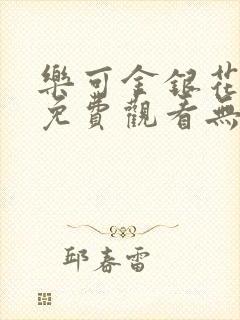 樂可金銀花
免費觀看無
邱春雷